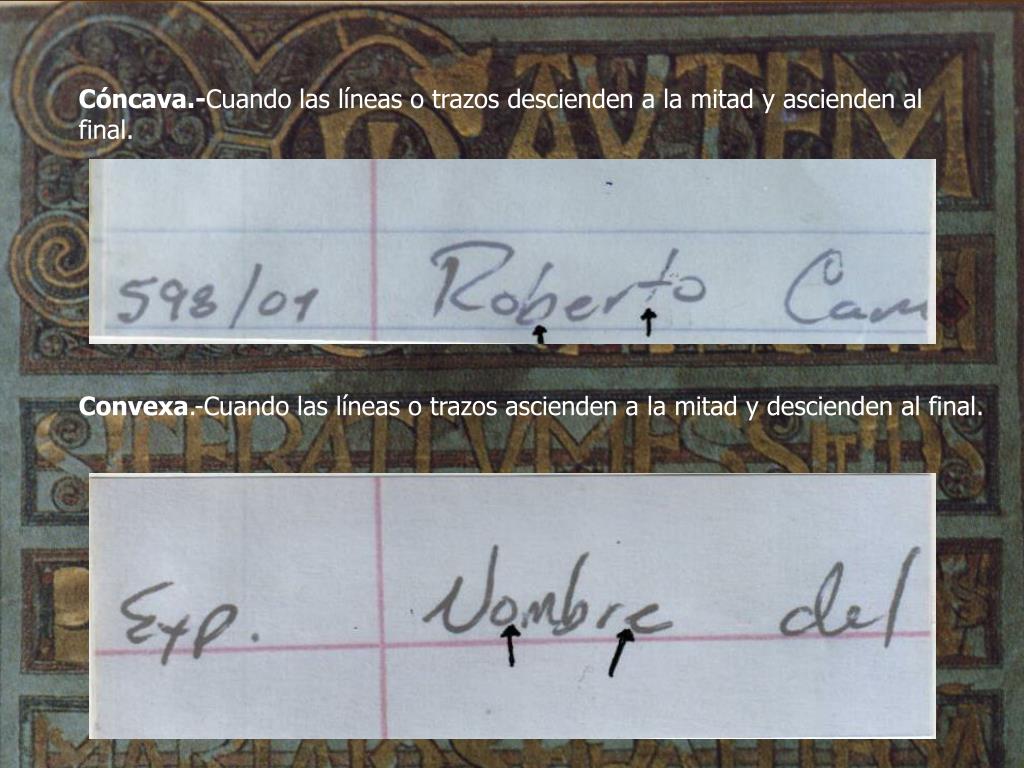 Cóncava.-Cuando las líneas o trazos descienden a la mitad y ascienden al
final.
598/01 Roberto Cam
Convexa.-Cuando las líneas o trazos ascienden a la mitad y descienden al final.
Exp. Nombre del